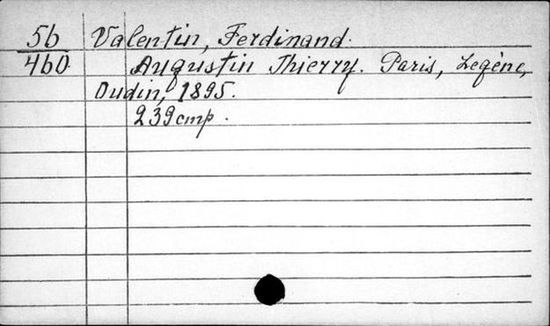 56 Valentin, Ferdinand.
460 Augustin Thierry. Paris, Legène,
Oudin, 1895.
239 cmp.